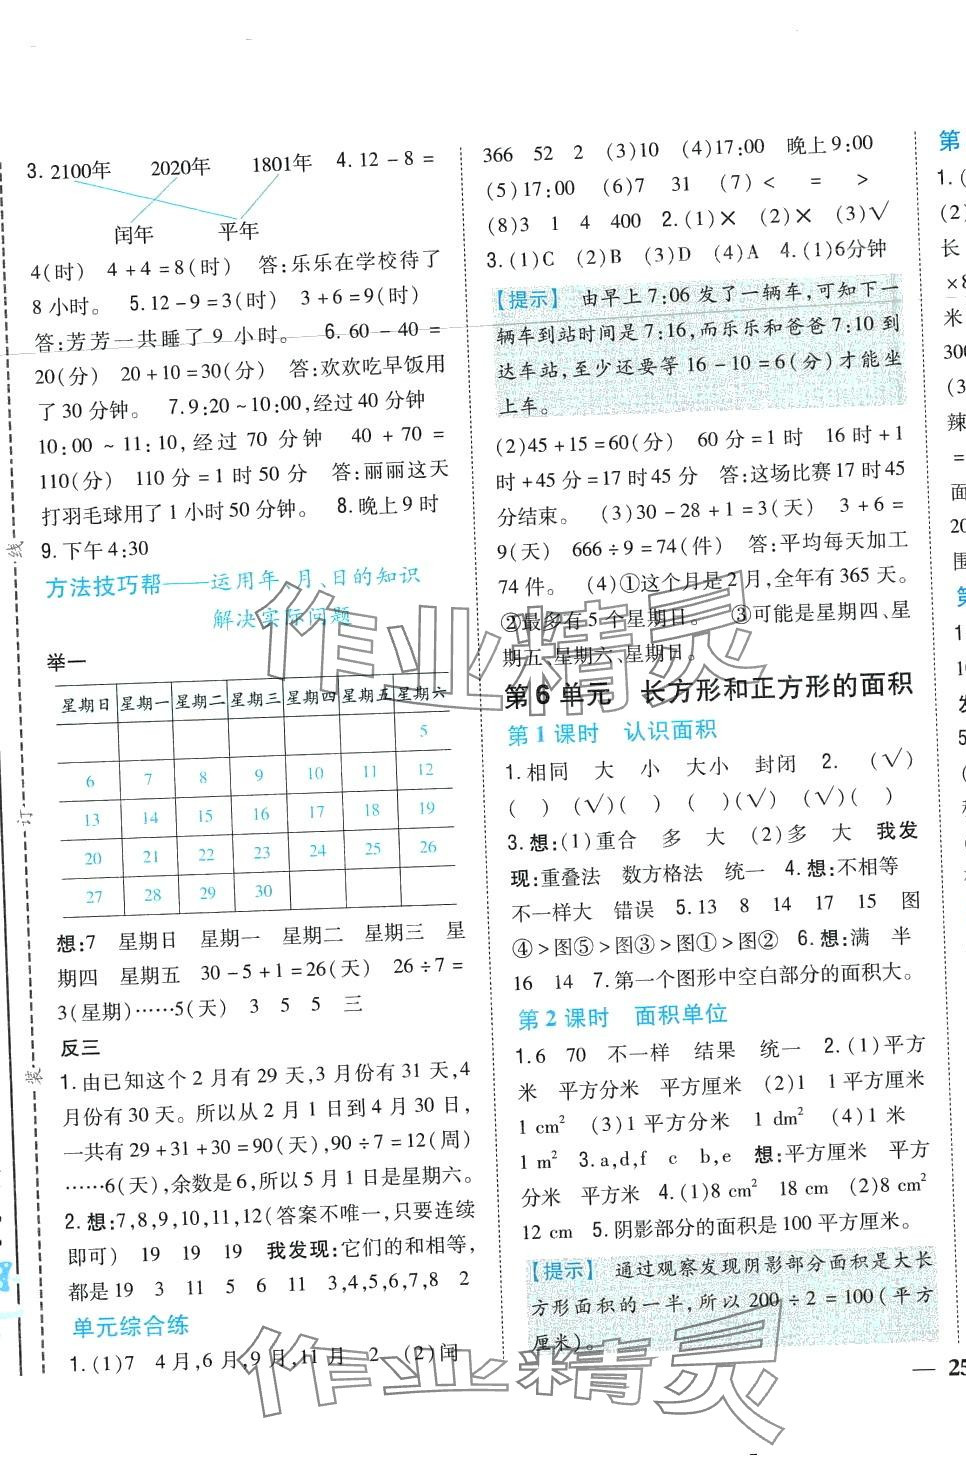 3. 2100年 2020年 1801年 4. 12－8＝
闰年 平年
4(时) 4＋4＝8(时) 答:乐乐在学校待了
8小时。 5. 12－9＝3(时) 3＋6＝9(时)
答:芳芳一共睡了9小时。 6. 60－40＝
20(分) 20＋10＝30(分) 答:欢欢吃早饭用
了30分钟。 7. 9:20~10:00,经过40分钟
10:00~11:10,经过70分钟 40＋70＝
110(分) 110分＝1时50分 答:丽丽这天
打羽毛球用了1小时50分钟。 8. 晚上9时
9. 下午4:30
方法技巧帮——运用年、月、日的知识
解决实际问题
举一
星期日 星期一 星期二 星期三 星期四 星期五 星期六
5
6 7 8 9 10 11 12
13 14 15 16 17 18 19
20 21 22 23 24 25 26
27 28 29 30
想:7 星期日 星期一 星期二 星期三 星
期四 星期五 30－5＋1＝26(天) 26÷7＝
3(星期)……5(天) 3 5 5 三
反三
1. 由已知这个2月有29天,3月份有31天,4
月份有30天。所以从2月1日到4月30日,
一共有29＋31＋30＝90(天),90÷7＝12(周)
……6(天),余数是6,所以5月1日是星期六。
2. 想:7,8,9,10,11,12(答案不唯一,只要连续
即可) 19 19 19 我发现:它们的和相等,
都是19 3 11 5 6 11 3,4,5,6,7,8 2
单元综合练
1. (1)7 4月,6月,9月,11月 2 (2)闰
366 52 2 (3)10 (4)17:00 晚上9:00
(5)17:00 (6)7 31 (7)＜ ＝ ＞
(8)3 1 4 400 2. (1)× (2)× (3)√
3. (1)C (2)B (3)D (4)A 4. (1)6分钟
【提示】 由早上7:06发了一辆车,可知下一
辆车到站时间是7:16,而乐乐和爸爸7:10到
达车站,至少还要等16－10＝6(分)才能坐
上车。
(2)45＋15＝60(分) 60分＝1时 16时＋1
时＋45分＝17时45分 答:这场比赛17时45
分结束。 (3)30－28＋1＝3(天) 3＋6＝
9(天) 666÷9＝74(件) 答:平均每天加工
74件。 (4)①这个月是2月,全年有365天。
②最多有5个星期日。 ③可能是星期四、星
期五、星期六、星期日。
第6单元 长方形和正方形的面积
第1课时 认识面积
1. 相同 大 小 大小 封闭 2. (√)
( ) (√)( ) ( )(√) (√)( )
3. 想:(1)重合 多 大 (2)多 大 我发
现:重叠法 数方格法 统一 4. 想:不相等
不一样大 错误 5. 13 8 14 17 15 图
④＞图⑤＞图③＞图①＞图② 6. 想:满 半
16 14 7. 第一个图形中空白部分的面积大。
第2课时 面积单位
1. 6 70 不一样 结果 统一 2. (1)平方
米 平方分米 平方厘米 (2)1 1平方厘米
1 cm² (3)1平方分米 1 dm² (4)1米
1 m² 3. a,d,f c b,e 想:平方厘米 平方
分米 平方米 4. (1)8 cm² 18 cm (2)8 cm²
12 cm 5. 阴影部分的面积是100平方厘米。
【提示】 通过观察发现阴影部分面积是大长
方形面积的一半,所以200÷2＝100(平方
厘米)。
— 25
线
订
装
作业精灵
作业精灵
第
1. (
(2)
长
×8
米
300
(3
辣
＝
面
20
围
第
1
10
发
5